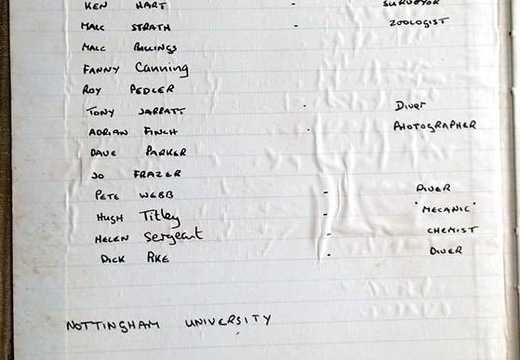 KEN HART - SURVEYOR
MALC STRATH - ZOOLOGIST
MALC BILLINGS
FANNY Canning
ROY PEDLER
TONY JARRATT - Diver
ADRIAN FINCH - PHOTOGRAPHER
DAVE PARKER
JO FRAZER
PETE WEBB - DIVER
HUGH Titley - "MECANIC"
HELEN Sergeant - CHEMIST
DICK - DIVER
NOTTINGHAM UNIVERSITY